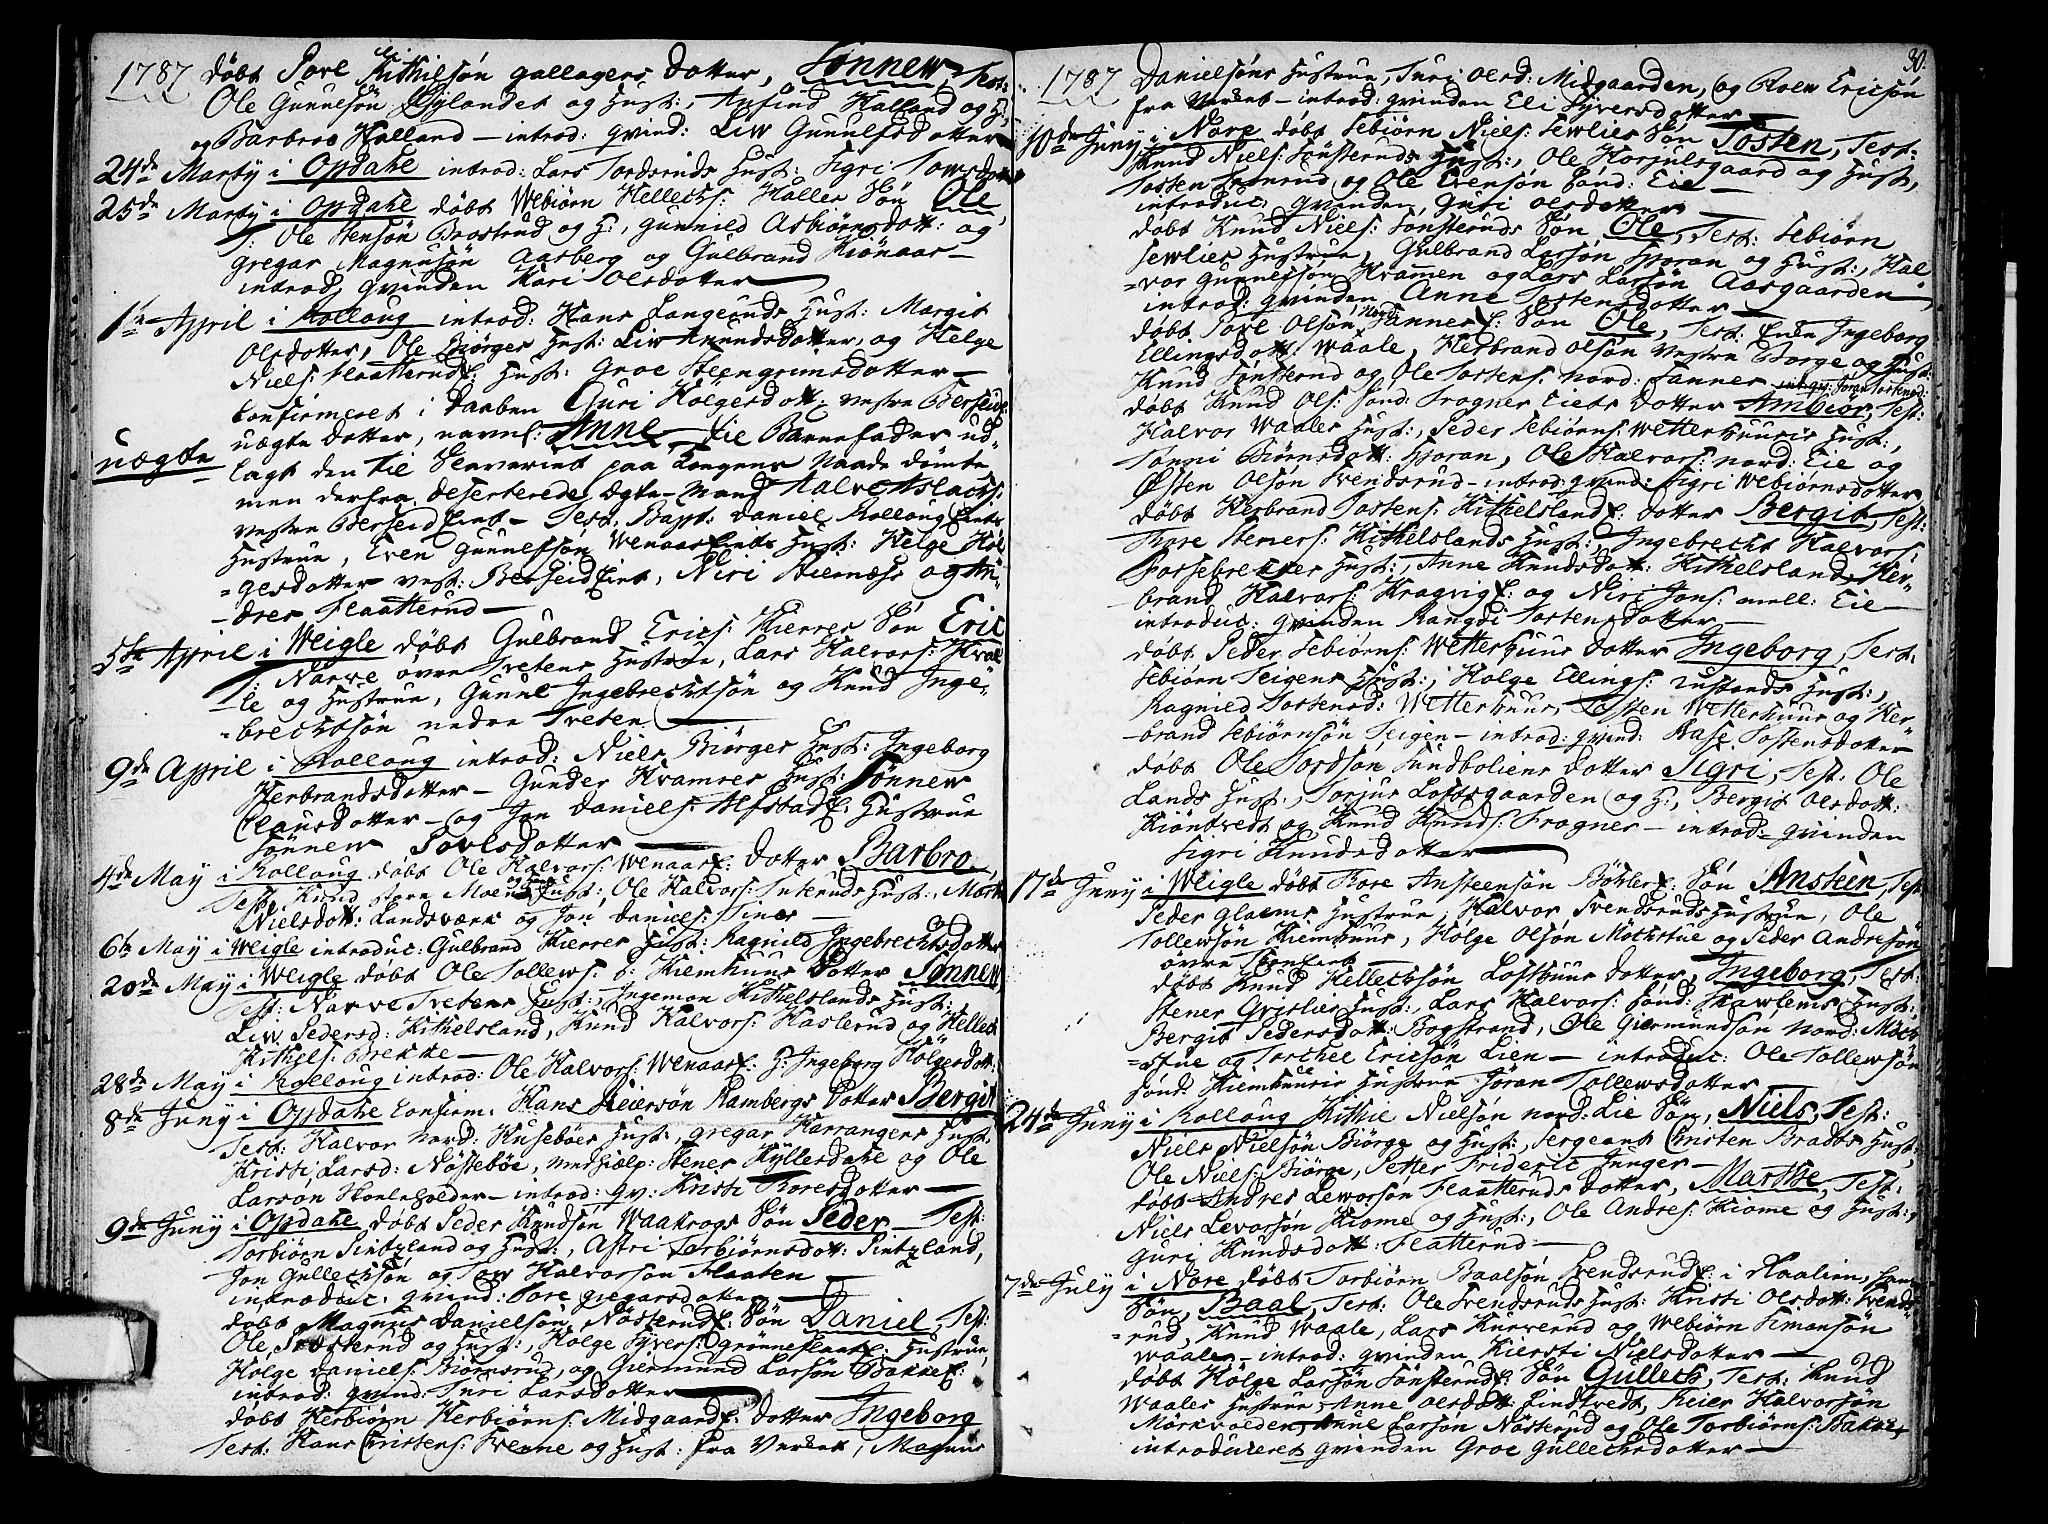 1787 døbt Tore Kithilsøn gallagers dotter, Sønnew, Test:
Ole Gunnulsøn Øylandet og Hust: Arfind Halland og H:
og Barbroe Halland – introd: qvind: Liw Gunulfsdotter
24de Martij i Opdahl introd: Lars Tordsruds Hust: Sigri
25de Martij i Opdahl døbt Webiørn Hellechs: Haller Søn Ole
T: Ole Stensøn Brostrud og H:, Gunnild Asbiørnsdott: og
gregar Magnusøn Aasberg og Gulbrand Kiønaas –
introd: qvinden Kari Olsdotter
1te April i Rolloug introd: Hans Langeruds Hust: Margit
Olsdotter, Ole Biørges Hust: Liw Amundsdotter, og Helge
Niels: Flaatteruds Hust: Groe Steengrimsdotter –
Confirmeret i Daaben Guri Holgersdott: vestre Berseid
uægte uægte dotter, navnl: Anne – til Barnefader ud-
lagt den til Slaveriet paa Kongens Naade dømte
men derfra deserterede ægte-Mand Halvor Aslachs:
vestre Berseid Eiet – Test. Bapt: Daniel Rolloug Eiets
Hustrue, Even Gunnelsøn Wenaas Eiets Hust: Helge Hol-
=gersdotter vest: Berseid Eiet, Niri Stiernæss og An-
-dres Flaatterud –
5te April i Weigle døbt Gulbrand Erics: Kierres Søn Eric
T: Narwe øvre Tvetens Hustrue, Lars Halvors: Kraal
ie og Hustrue, Gunul Ingebrechtsøn og Knud Inge-
=brechtsøn nedre Tveten
9de April i Rolloug introd: Niels Biørges Hust: Ingeborg
Herbrandsdotter – Gunder Kramres Hust: Sønnew
Clausdotter – og Jon Daniels: Alfstad E: Hustrue
Sønnew Povlsdotter –
4de May i Rolloug døbt Ole Halvors: Wenaas E: dotter Barbro,
Test: Knud store Moen og Hust:, Ole Halvors: Hust: Marte
Nielsdott: Landsværk og Jon Daniels: Tines –
6te May i Weigle introduc: Gulbrand Kierres Hust: Ragnild Ingebrechtsdotter
20de May i Weigle døbt Ole Tollews: S: Kiemhuus Dotter Sønnew
Test: Narve Tvetens Hust:, Ingemon Kithelslands Hust:
Liw Pedersd: Kithelsland, Knud Halvors: Haslerud og Hellech
Kithels: Brekke –
28de May i Rolloug introd: Ole Halvors: Wenaas E: H: Ingeborg Holgersdott:
8de Juny i Opdahl Confirm: Hans Reiersøn Rambergs Dotter Bergit
Test: Halvor nord: Husebøes Hust:, gregar Harrangens Hust:
Kristi Larsd: Nøstebøe, undhiælp: Stener Hyllerdahl og Ole
Larson Skoleholder – introd: qv: Kristi Toresdotter –
9de Juny i Opdahl døbt Peder Knudsøn Waakrogs Søn Peder – Test:
Torbiørn Pintzland og Hust:, Astri Torbiørnsdott: Pintzland,
Jon Gullechsøn og Tow Halvorson Flaaten
introduc: qvind: Tore giegarsdotter –
døbt Magnus Danielsøn Nøsterud E: Søn Daniel, Test:
Ole Træsterud og Hust:, Holge Syvers: grønneflaat E: Hustrue,
Holge Daniels: Biørnsrud, og Giermund Larsøn Bakke E:
introd: qvind: Turi Larsdotter
døbt Herbiørn Herbiørns: Midgaard E: dotter Ingeborg
Test: Hans Christens: Frenne og Hust: fra Verket, Magnus
30.
1787 Danielsøns Hustrue, Turi olsd: Midgaarden, og Roew Ericsøn
fra Verket – introd: qvinden Eli Syversdotter
10de Juny i Nore døbt Sebiørn Niels: Sewlies Søn Tosten, Test:
Knud Niels: Sønsteruds Hust:, Ole Korsulsgaard og Hust,
Tosten Tømrud og Ole Evensøn sønd: Eie –
introduc: qvinden Guri olsdotter
døbt Knud Niels: Sønsteruds Søn Ole, Test: Sebiørn
Sewlies Hustrue, Gulbrand Larsøn Horan og Hust:, Hal-
=vor gunnelsøn Kramen og Lars Larsøn Aasgaarden
introd: qvinden Anne Tostensdotter
døbt Povl Olsøn Nord: Fannes E: Søn Ole, Test: Ingeborg
Ellingsdott: Waale, Herbrand Olsøn vestre Borge og Hust:
Knud Sønsterud og Ole Tostens: nord: Fannes introd: Jøran Tostensd:
døbt Knud Ols: sønd: Frogner Eiets dotter Ambiør, Test:
Halvor Waales Hust:, Peder Sebiørns: Wetterhuus Hust:,
Tønni Biørnsdott: Horan, Ole Halvors: nord: Eie og
Østen Olsøn Svendsrud – introd: qvind: Sigri Webiørnsdotter
døbt Herbrand Tostens: Kithelsland E: dotter Bergit, Test:
Tore Steners: Kithelslands Hust:, Ingebrecht Halvors:
Fossebrekkes Hust:, Anne Knudsdott: Kithelsland, Her-
brand Halvors: Kragvig E: og Niri Jons: mell: Eie –
introduc: qvinden Rangdi Tostensdotter
døbt Peder Sebiørns: Wetterhuus dotter Ingeborg, Test:
Sebiørn Teigens Hust:, Holge Ellings: Rustands Hust:,
Ragnild Tostensd: Wetterhuus, Tosten Wetterhuus og Her-
brand Sebiørnsøn Teigen – introd: qvind: Aase Tostensdotter
døbt Ole Tordsøn Sundboliens dotter Sigri, Test: Ole
Lands Hust:, Torjus Loftsgaarden og H:, Bergit olsdott:
Kiøntvedt og Knud Knuds: Frogner – introd: qvinden
Sigri Knudsdotter
17de Juny i Weigle døbt Tore Ansteensøn Bøhler E: Søn Ansteen, Test:
Peder glaems Hustrue, Halvor Svendsruds Hustrue, Ole
Tollewsøn Kiemhuus, Holge Olsøn Mochstue og Peder Andresøn
øvre
døbt Knud Hellechsøn Lofthuus dotter, Ingeborg, Test:
Stener Gvislies Hust:, Lars Halvors: sønd: Skawlems Hust:
Bergit Pedersdott: Bogstrand, Ole Giermundsøn nord: Moch
=stue og Torchel Ericsøn Lien – introduc: Ole Tollewsøn
sønd: Kiemhuus Hustrue Jøran Tollewsdotter
24de Juny i Rolloug Kithil Nielsøn nord: Lie Søn, Niels, Test:
Niels Nielsøn Biørge og Hust:, Sergeant Christen Bradts Hust,
Ole Niels: Biørge, Petter Frideric Junger –
døbt Andres Leworsøn Flaatteruds Dotter, Marthe, Test:
Niels Levorsøn Kiome og Hust:, Ole Andres: Kiome og Hust:,
Gurj Knudsdott: Flatterud –
7de July i Nore døbt Torbiørn Baalsøn Svendsrud E: i Aaslien,
Søn, Baal, Test: Ole Svendsruds Hust: Kristi Olsdott: Svends-
=rud, Knud Waale, Lars Kurverud og Webiørn Simonsøn
Waale – introd: qvinden Kiersti Nielsdotter
døbt Holge Larsøn Sønsterud E: Søn Gullech, Test: Knud
Waales Hustrue, Anne olsdott Lindtvedt, Reier Halvorsøn
Markvolden, Anne Larson Nøsterud og Ole Torbiørns: Bakke,
introduceret qvinden Groe Gullechsdotter –